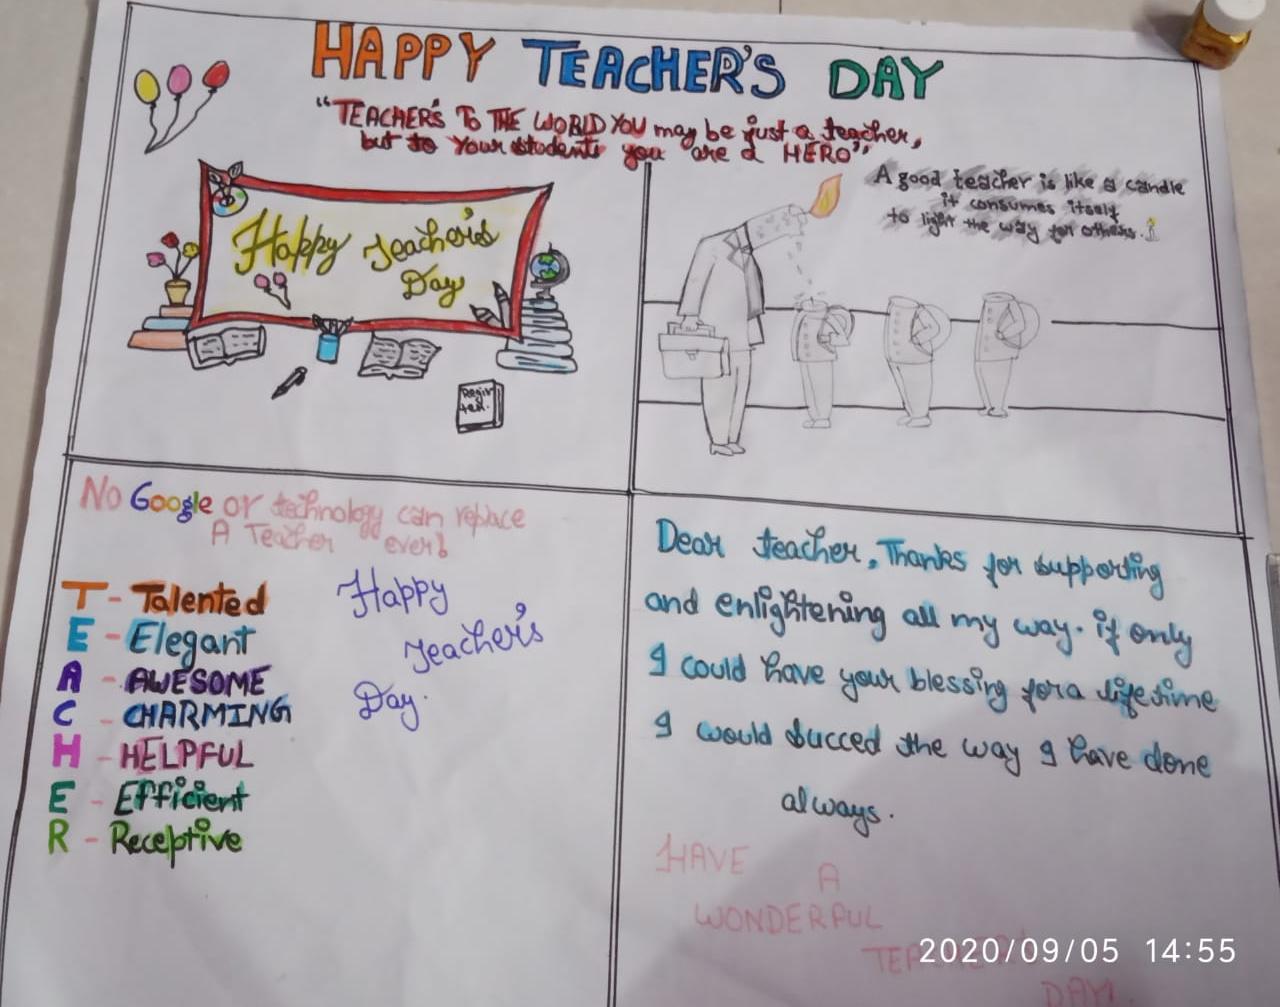 HAPPY TEACHER'S DAY
"TEACHER'S TO THE WORLD YOU may be just a teacher,
but to Your students you are a HERO"
Happy Teacher's
Day
Regis
ter.
A good teacher is like a candle
it consumes itself
to light the way for others.
No Google or technology can replace
A Teacher ever!
T - Talented
E - Elegant
A - AWESOME
C - CHARMING
H - HELPFUL
E - Efficient
R - Receptive
Happy
Teacher's
Day.
Dear teacher, Thanks for supporting
and enlightening all my way. if only
I could have your blessing for a lifetime
I would succed the way I have done
always.
HAVE A
WONDERFUL
TEACHER'S
DAY
2020/09/05 14:55